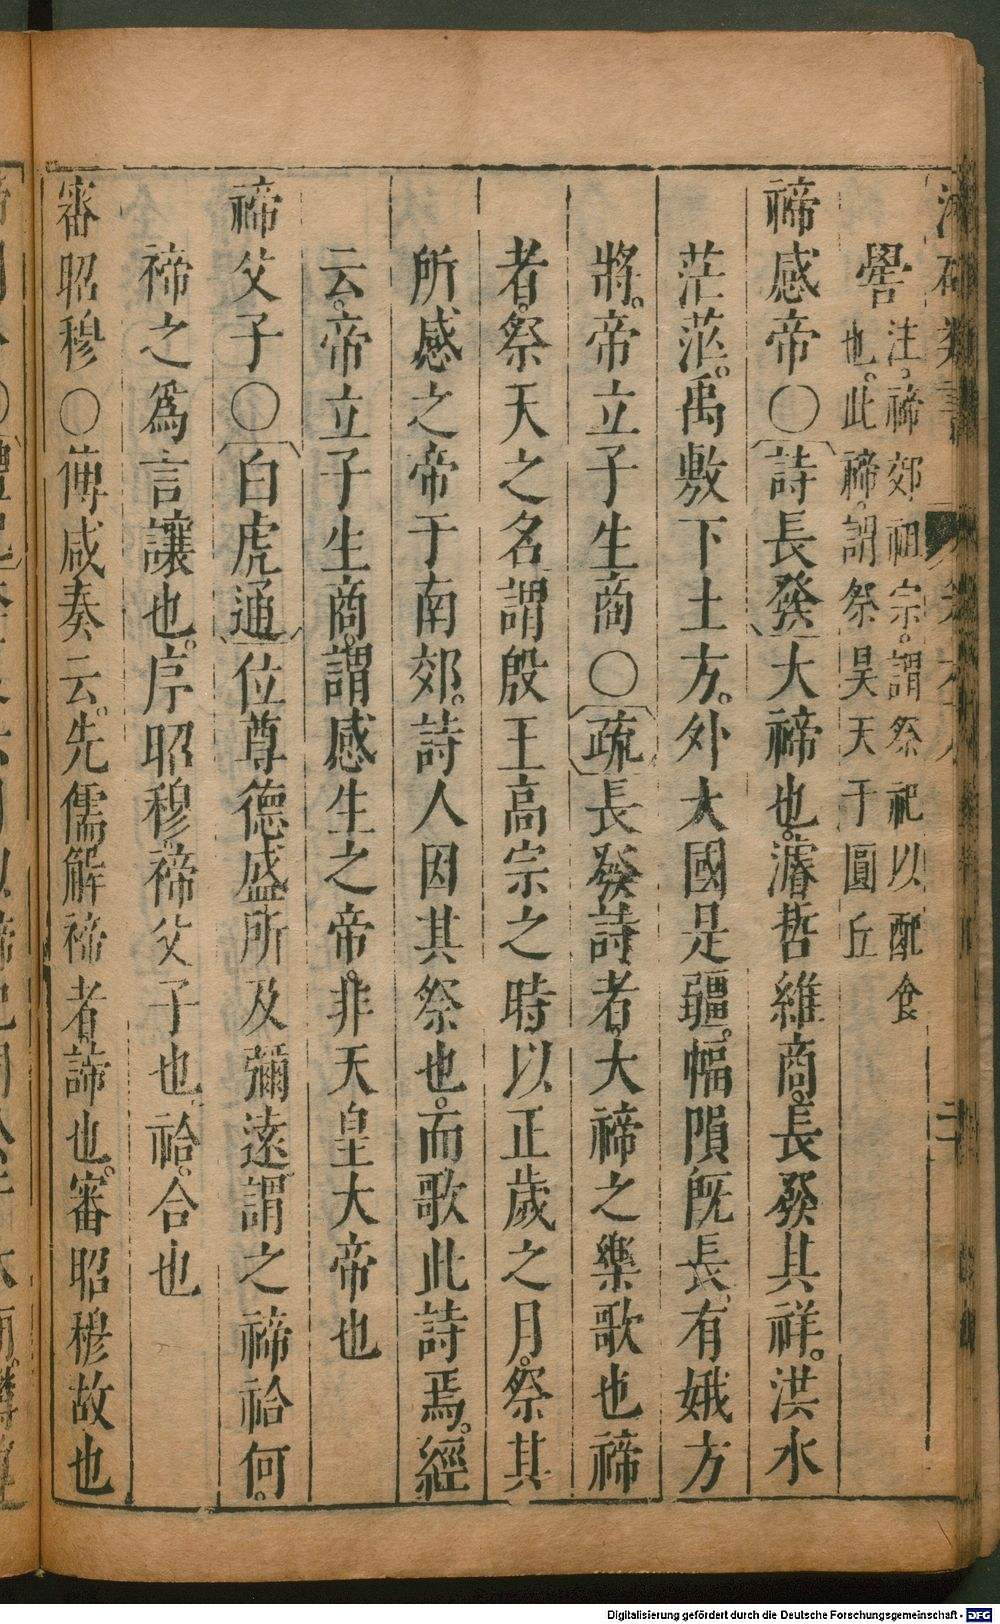 嚳注。禘郊祖宗。謂祭祀以配食
也。此禘。謂祭昊天于圓丘
禘感帝〇詩長發大禘也。濬哲維商。長發其祥。洪水
茫茫。禹敷下土方。外大國是疆。幅隕旣長。有娀方
將。帝立子生商〇疏長發詩者。大禘之樂歌也禘
者。祭天之名。謂殷王高宗之時。以正歲之月。祭其
所感之帝于南郊。詩人因其祭也。而歌此詩焉。經
云。帝立子生商。謂感生之帝。非天皇大帝也
禘父子〇白虎通位尊德盛所及彌遠。謂之禘祫何。
禘之爲言讓也。序昭穆。禘父子也。祫。合也
審昭穆〇傅咸奏云。先儒解禘者。諦也。審昭穆故也
二
Digitalisierung gefördert durch die Deutsche Forschungsgemeinschaft - DFG